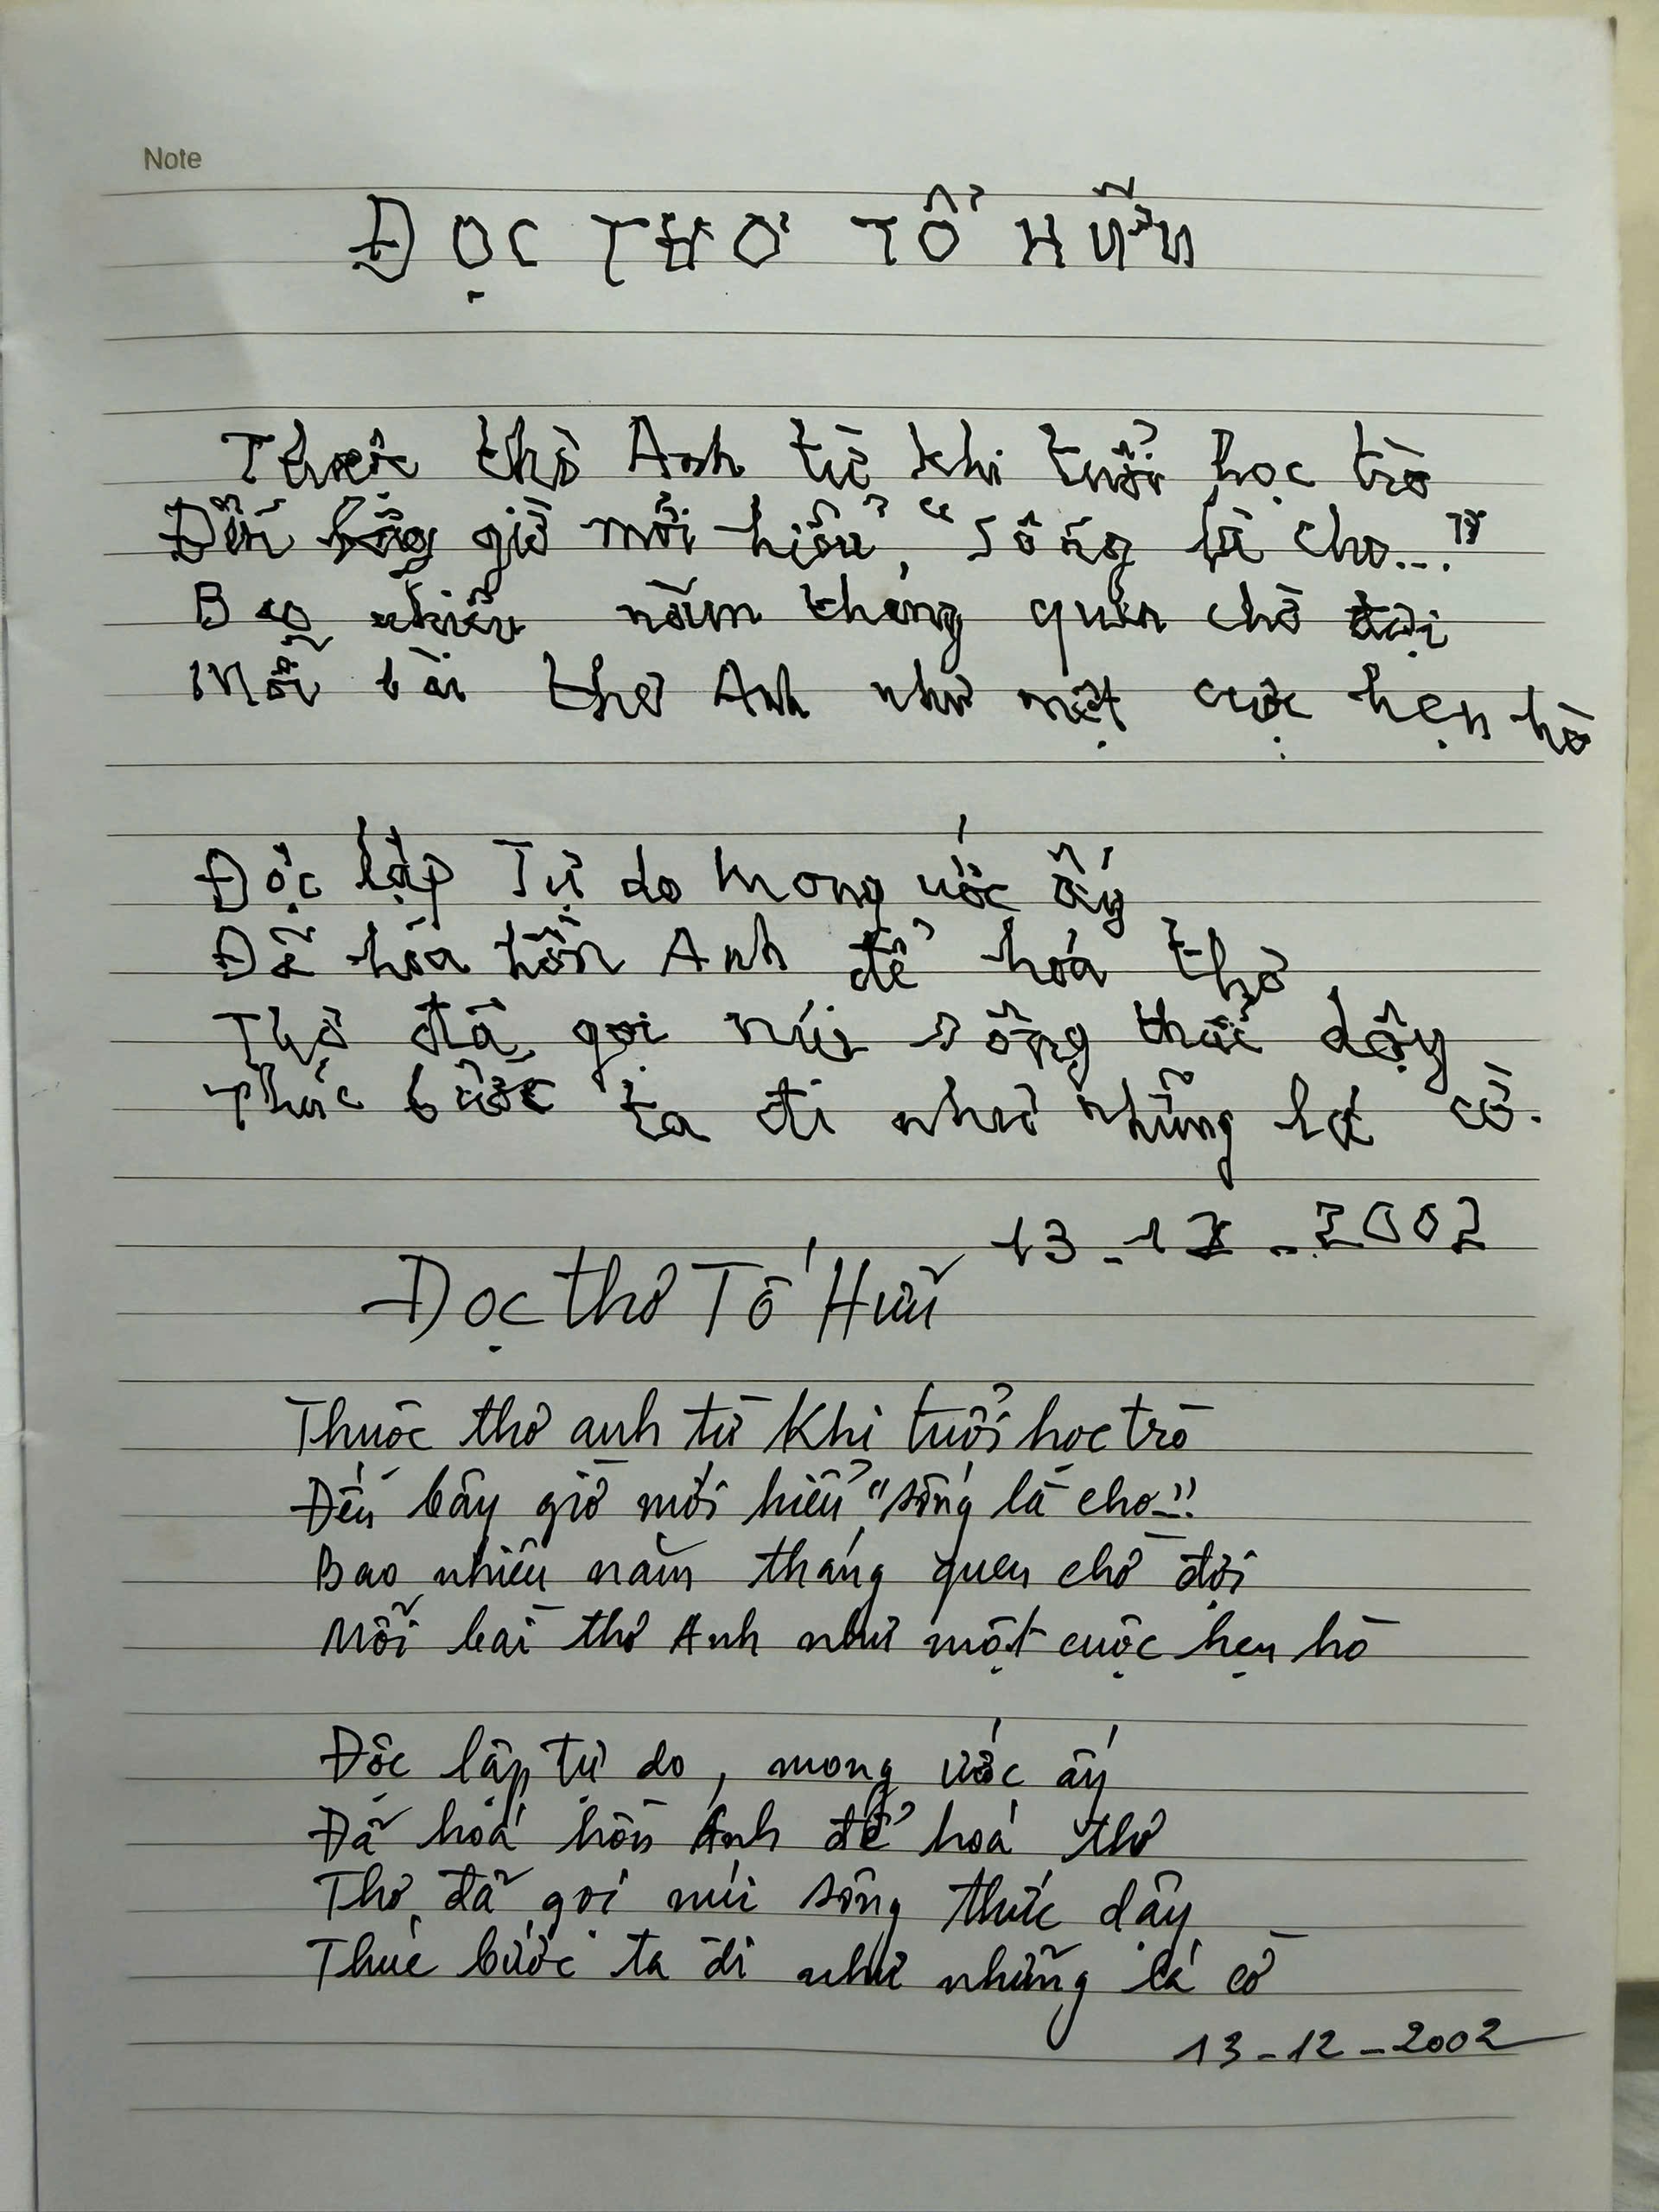 Note
ĐỌC THƠ TỐ HỮU
Thuộc thơ Anh từ khi tuổi học trò
Đến bây giờ mới hiểu, "Sống là cho..."
Bao nhiêu năm tháng quen chờ đợi
Mỗi bài thơ Anh như một cuộc hẹn hò
Độc lập Tự do mong ước ấy
Đã hóa hồn Anh để hóa thơ
Thơ đã gọi núi sông thức dậy
Thúc bước ta đi như những lá cờ.
13-12-2002
Đọc thơ Tố Hữu
Thuộc thơ anh từ khi tuổi học trò
Đến bây giờ mới hiểu "sống là cho..."
Bao nhiêu năm tháng quen chờ đợi
Mỗi bài thơ Anh như một cuộc hẹn hò
Độc lập tự do, mong ước ấy
Đã hoá hồn Anh để hoá thơ
Thơ đã gọi núi sông thức dậy
Thúc bước ta đi như những lá cờ
13-12-2002